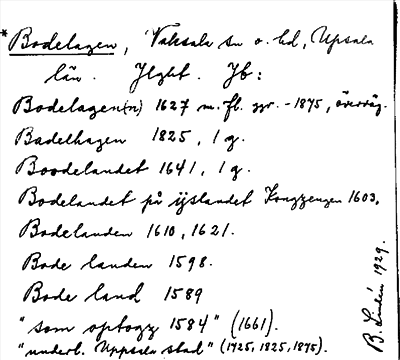 *Bodelagen, Vaksala sn o. hd, Uppsala
län. Jlght. Jb:
Bodelagen(n) 1627 m.fl. ggr. -1875, överväg.
Badelhagen 1825, 1 g.
Boodelandet 1641, 1 g.
Bodelandet på ijslandet Konggzengen 1603.
Bodelanden 1610, 1621.
Bode landen 1598.
Bode land 1589
"som optogz 1584" (1661).
"underl. Uppsala stad" (1725, 1825, 1875).
B. Lindén 1929.